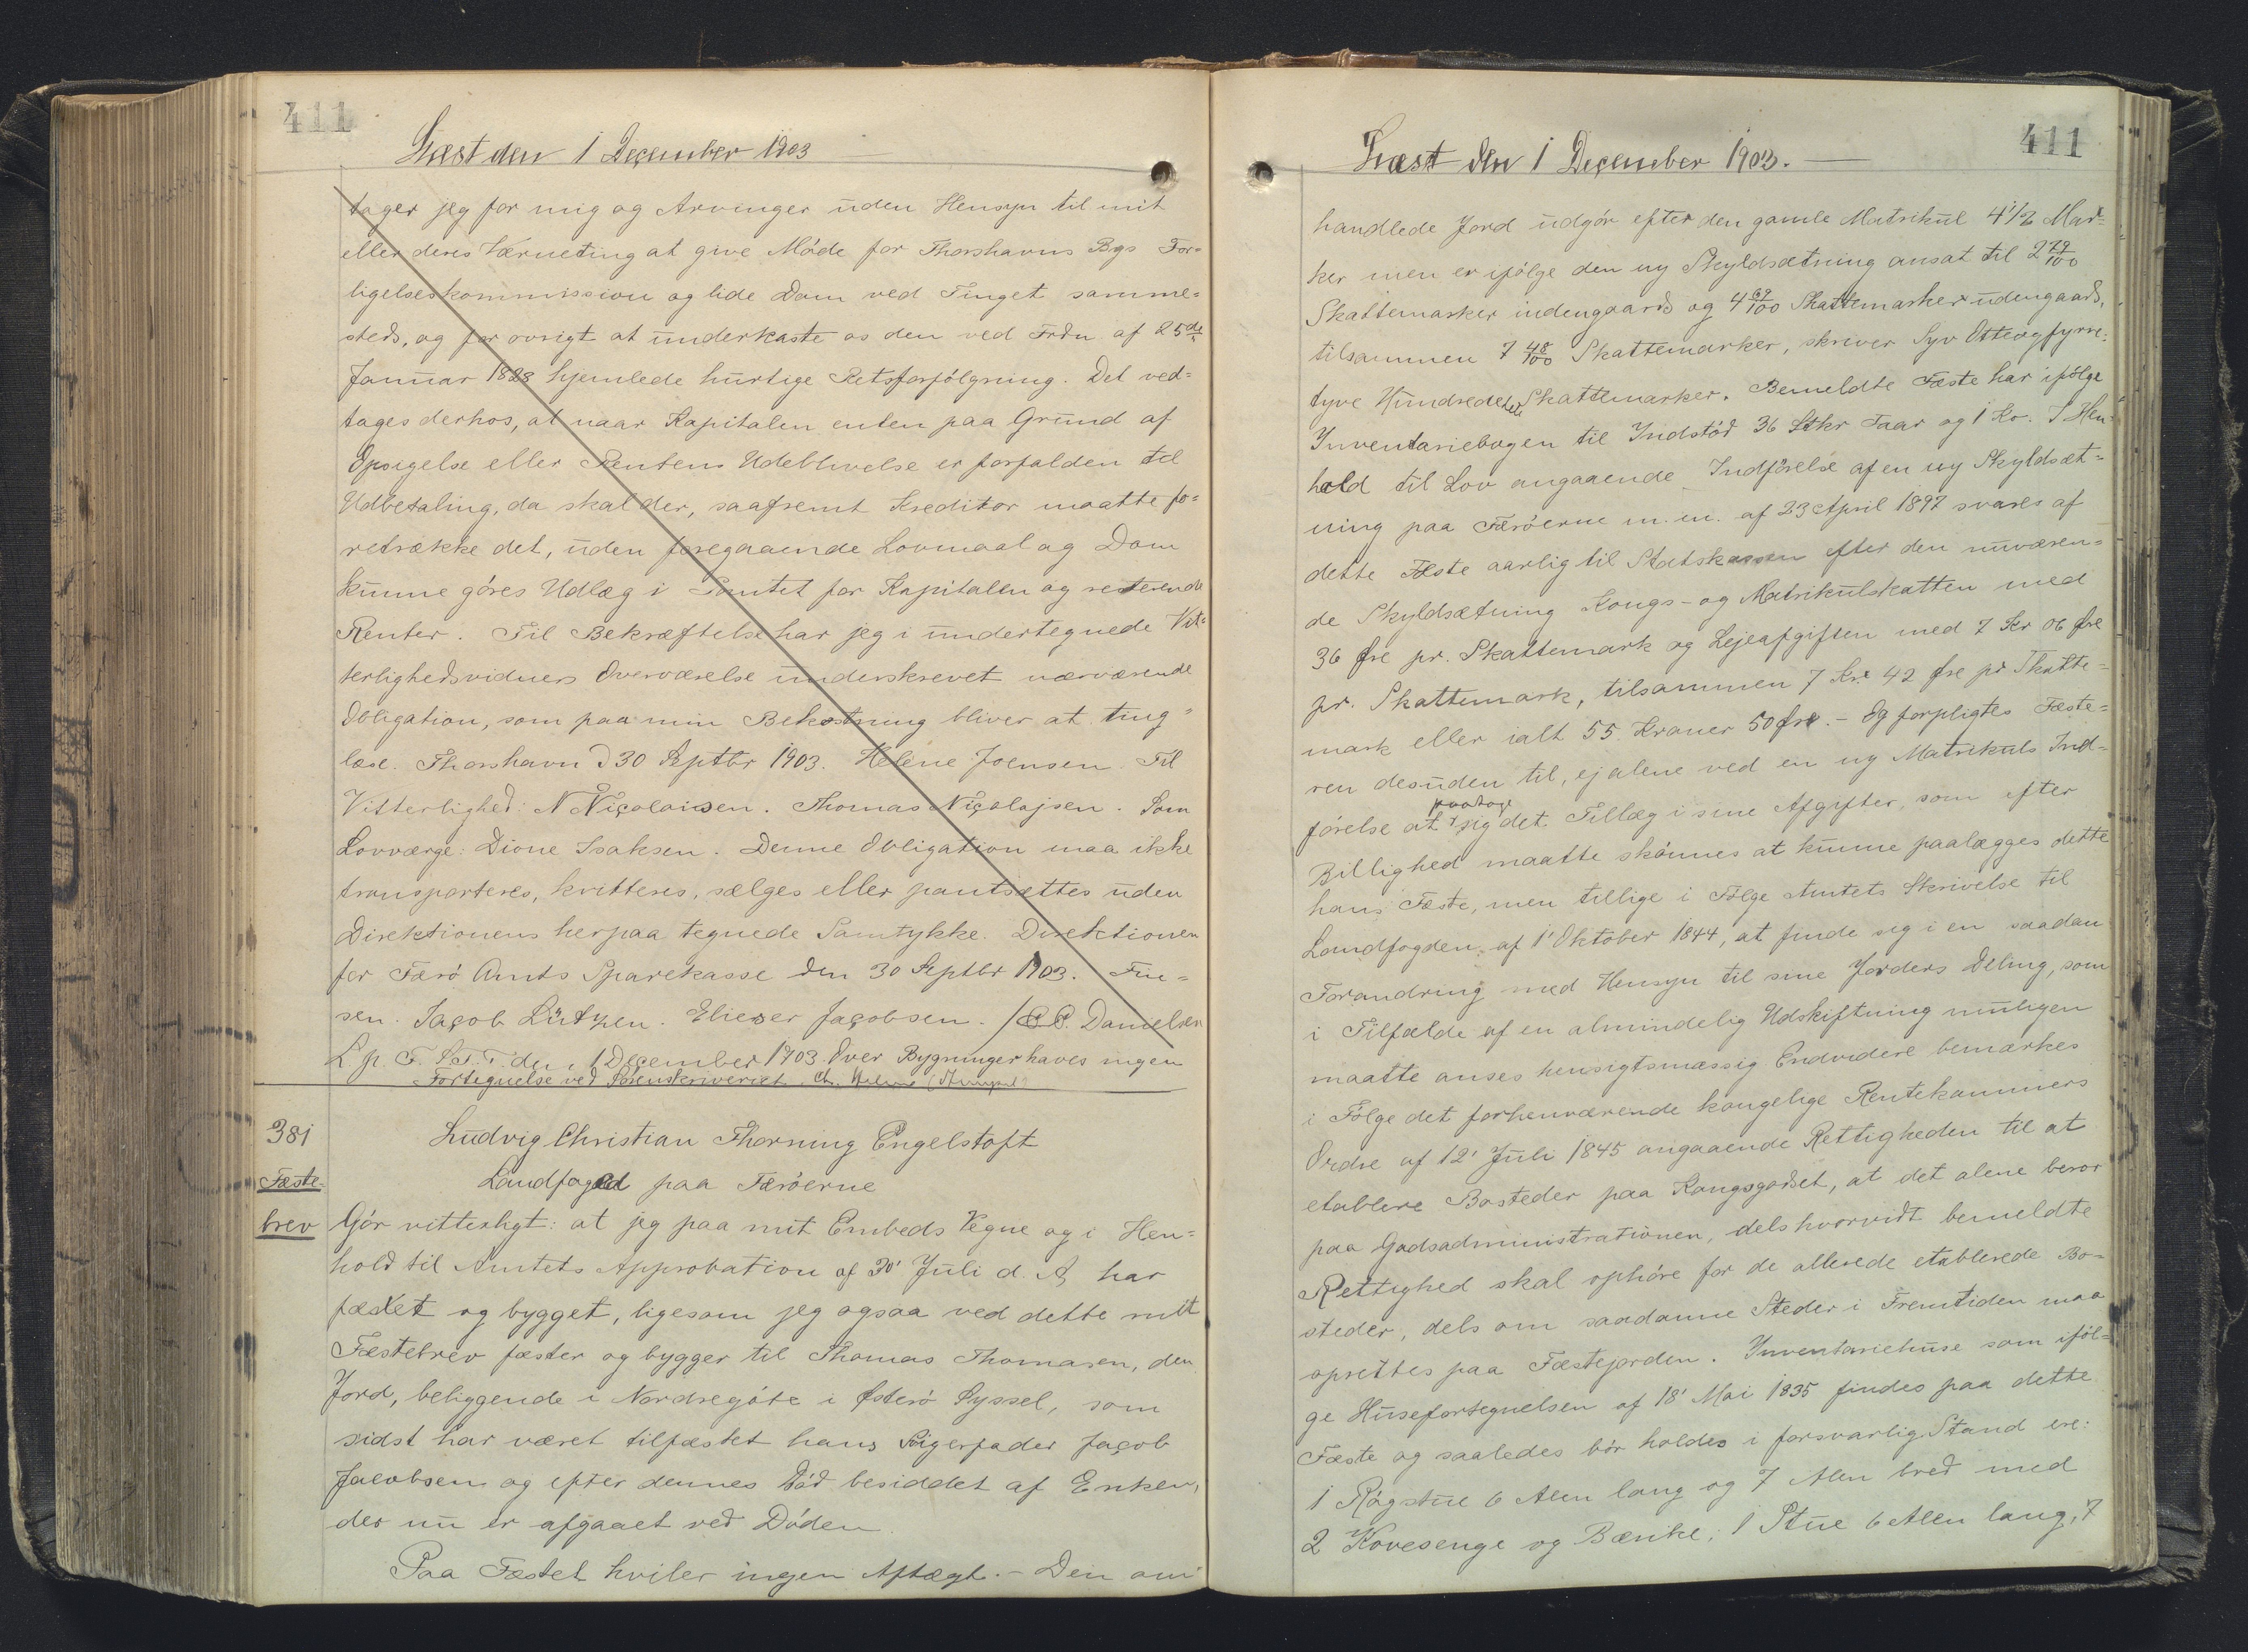 411
Læst den 1 December 1903
tager jeg for mig og Arvinger uden Hensyn til mit
eller deres Værneting at give Møde for Thorshavns Bys For=
ligelseskommission og lide Dom ved Tinget samme=
steds, og for øvrigt at underkaste os den ved Frdn af 25de
Januar 1828 hjemlede hurtige Retsforfølgning. Det ved=
tages derhos, at naar Kapitalen enten paa Grund af
Opsigelse eller Rentens Udeblivelse er forfalden til
Udbetaling, da skal der, saafremt Kreditor maatte fo=
retrække det, uden foregaaende Lovmaal og Dom
kunne gøres Udlæg i Pantet for Kapitalen og resterende
Renter. Til Bekræftelse har jeg i undertegnede Vit=
terlighedsvidners Overværelse underskrevet nærværende
Obligation, som paa min Bekostning bliver at ting=
læse. Thorshavn d 30 Septbr 1903. Helene Joensen. Til
Vitterlighed: N Niçolaisen. Thomas Niçolajsen. Som
Lovværge: Dione Isaksen. Denne Obligation maa ikke
transporteres, kvitteres, sælges eller pantsættes uden
Direktionens herpaa tegnede Samtykke. Direktionen
for Færø Amts Sparekasse den 30 Septbr 1903. Fue=
sen. Jaçob Lützen. Elieser Jaçobsen. / P. Danielsen
L. p. F. S. T. T. den 1 Deçember 1903. Over Bygninger haves ingen
Fortegnelse ved Sorenskriveriet.
381
Ludvig Christian Thorning Engelstoft
Fæste-
Landfoged paa Færøerne
brev
Gör vitterligt: at jeg paa mit Embeds Vegne og i Hen=
hold til Amtets Approbation af 30' Juli d. A, har
fæstet og bygget, ligesom jeg ogsaa ved dette mit
Fæstebrev fæster og bygger til Thomas Thomasen, den
Jord, beliggende i Nordregøte i Østerø Syssel, som
sidst har været tilfæstet hans Svigerfader Jaçob
Jacobsen og efter dennes Död besiddet af Enken,
der nu er afgaaet ved Døden
Paa Fæstet hviler ingen Aftægt. - Den om
411
Læst den 1 December 1903.
handlede Jord udgör efter den gamle Matrikul 4 1/2 Mar=
ker men er ifölge den ny Skyldsætning ansat til 2 79/100
Skattemarker indengaards og 4 69/100 Skattemarker udengaards,
tilsammen 7 48/100 Skattemarker, skriver Syv Otteogfyrre=
tyve Hundrededele Skattemarker. Bemeldte Fæste har ifölge
Inventariebogen til Indstöd 36 Stkr Faar og 1 Ko. I Hen=
hold til Lov angaaende Indförelse af en ny Skyldsæt=
ning paa Færöerne m. m. af 23 April 1897 svares af
dette Fæste aarlig til Statskassen efter den nuværen=
de Skyldsætning Kongs- og Matrikulskatten med
36 Øre pr. Skattemark og Lejeafgiften med 7 Kr 06 Øre
pr. Skattemark, tilsammen 7 Kr. 42 Øre pr Skatte=
mark eller ialt 55 Kroner 50 Øre. - Og forpligtes Fæste=
ren desuden til, ej alene ved en ny Matrikuls Ind=
førelse at paatage sig det Tillæg i sine Afgifter, som efter
Billighed maatte skönnes at kunne paalægges dette
hans Fæste, men tillige i Fölge Amtets Skrivelse til
Landfogden af 1' Oktober 1844, at finde sig i en saadan
Forandring med Hensyn til sine Jorders Deling, som
i Tilfælde af en almindelig Udskiftning muligen
maatte anses hensigtsmæssig. Endvidere bemærkes
i Fölge det forhenværende kongelige Rentekammers
Ordre af 12' Juli 1845 angaaende Rettigheden til at
etablere Bosteder paa Kongsgodset, at det alene beror
paa Godsadministrationen, dels hvorvidt bemeldte
Rettighed skal ophöre for de allerede etablerede Bo=
steder, dels om saadanne Steder i Fremtiden maa
oprettes paa Fæstejorden. Inventariehuse som ifölge
ge Husefortegnelsen af 18' Mai 1835 findes paa dette
Fæste og saaledes bör holdes i forsvarlig Stand ere:
1 Rögstue 6 Alen lang og 7 Alen bred med
2 Kovesenge og Bænke; 1 Stue 6 Alen lang, 7